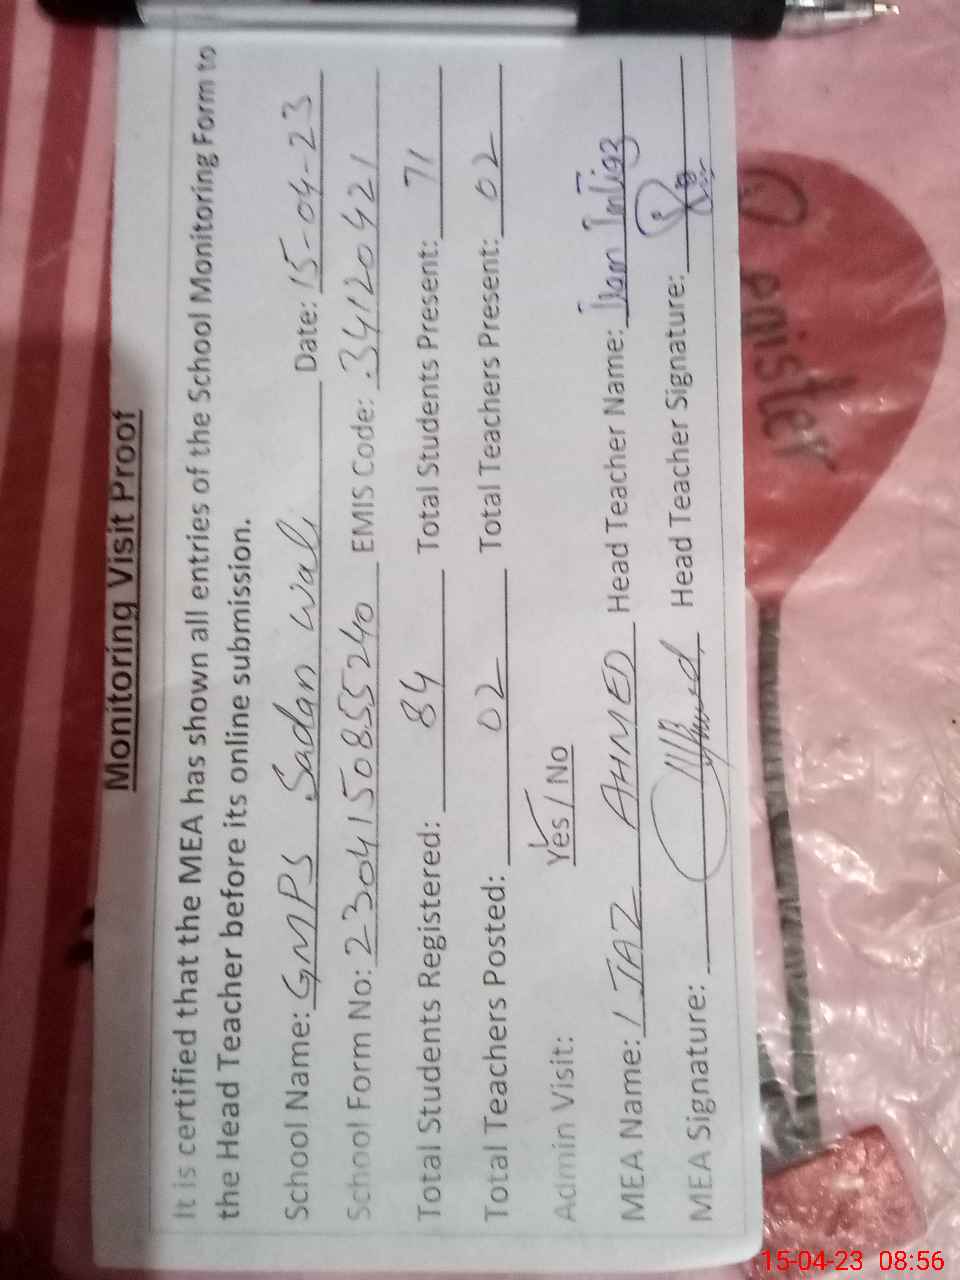 Monitoring Visit Proof
It is certified that the MEA has shown all entries of the School Monitoring Form to
the Head Teacher before its online submission.
School Name: GMPS Sadan Wali Date: 15-04-23
School Form No: 2304150855240 EMIS Code: 34120421
Total Students Registered: 84 Total Students Present: 71
Total Teachers Posted: 02 Total Teachers Present: 02
Admin Visit: Yes / No
MEA Name: IJAZ AHMED Head Teacher Name: Iram Imtiaz
MEA Signature: Head Teacher Signature:
15-04-23 08:56